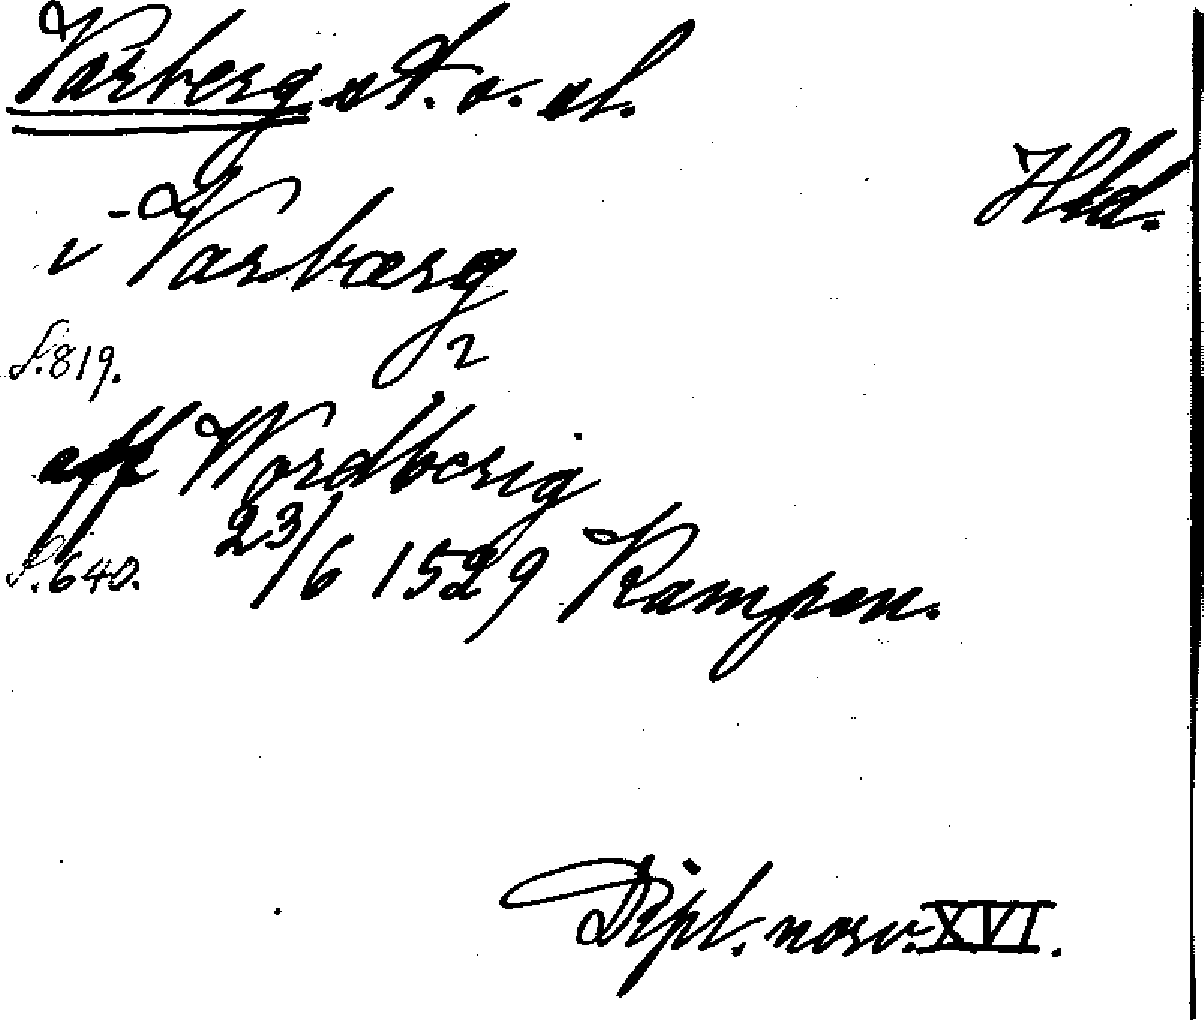 Varberg st. o. sl.
Hld.
i Varbærg
S. 819.
2
aff Wordberig
S. 640.
23/6 1529 Kampen.
Dipl. norv. XVI.